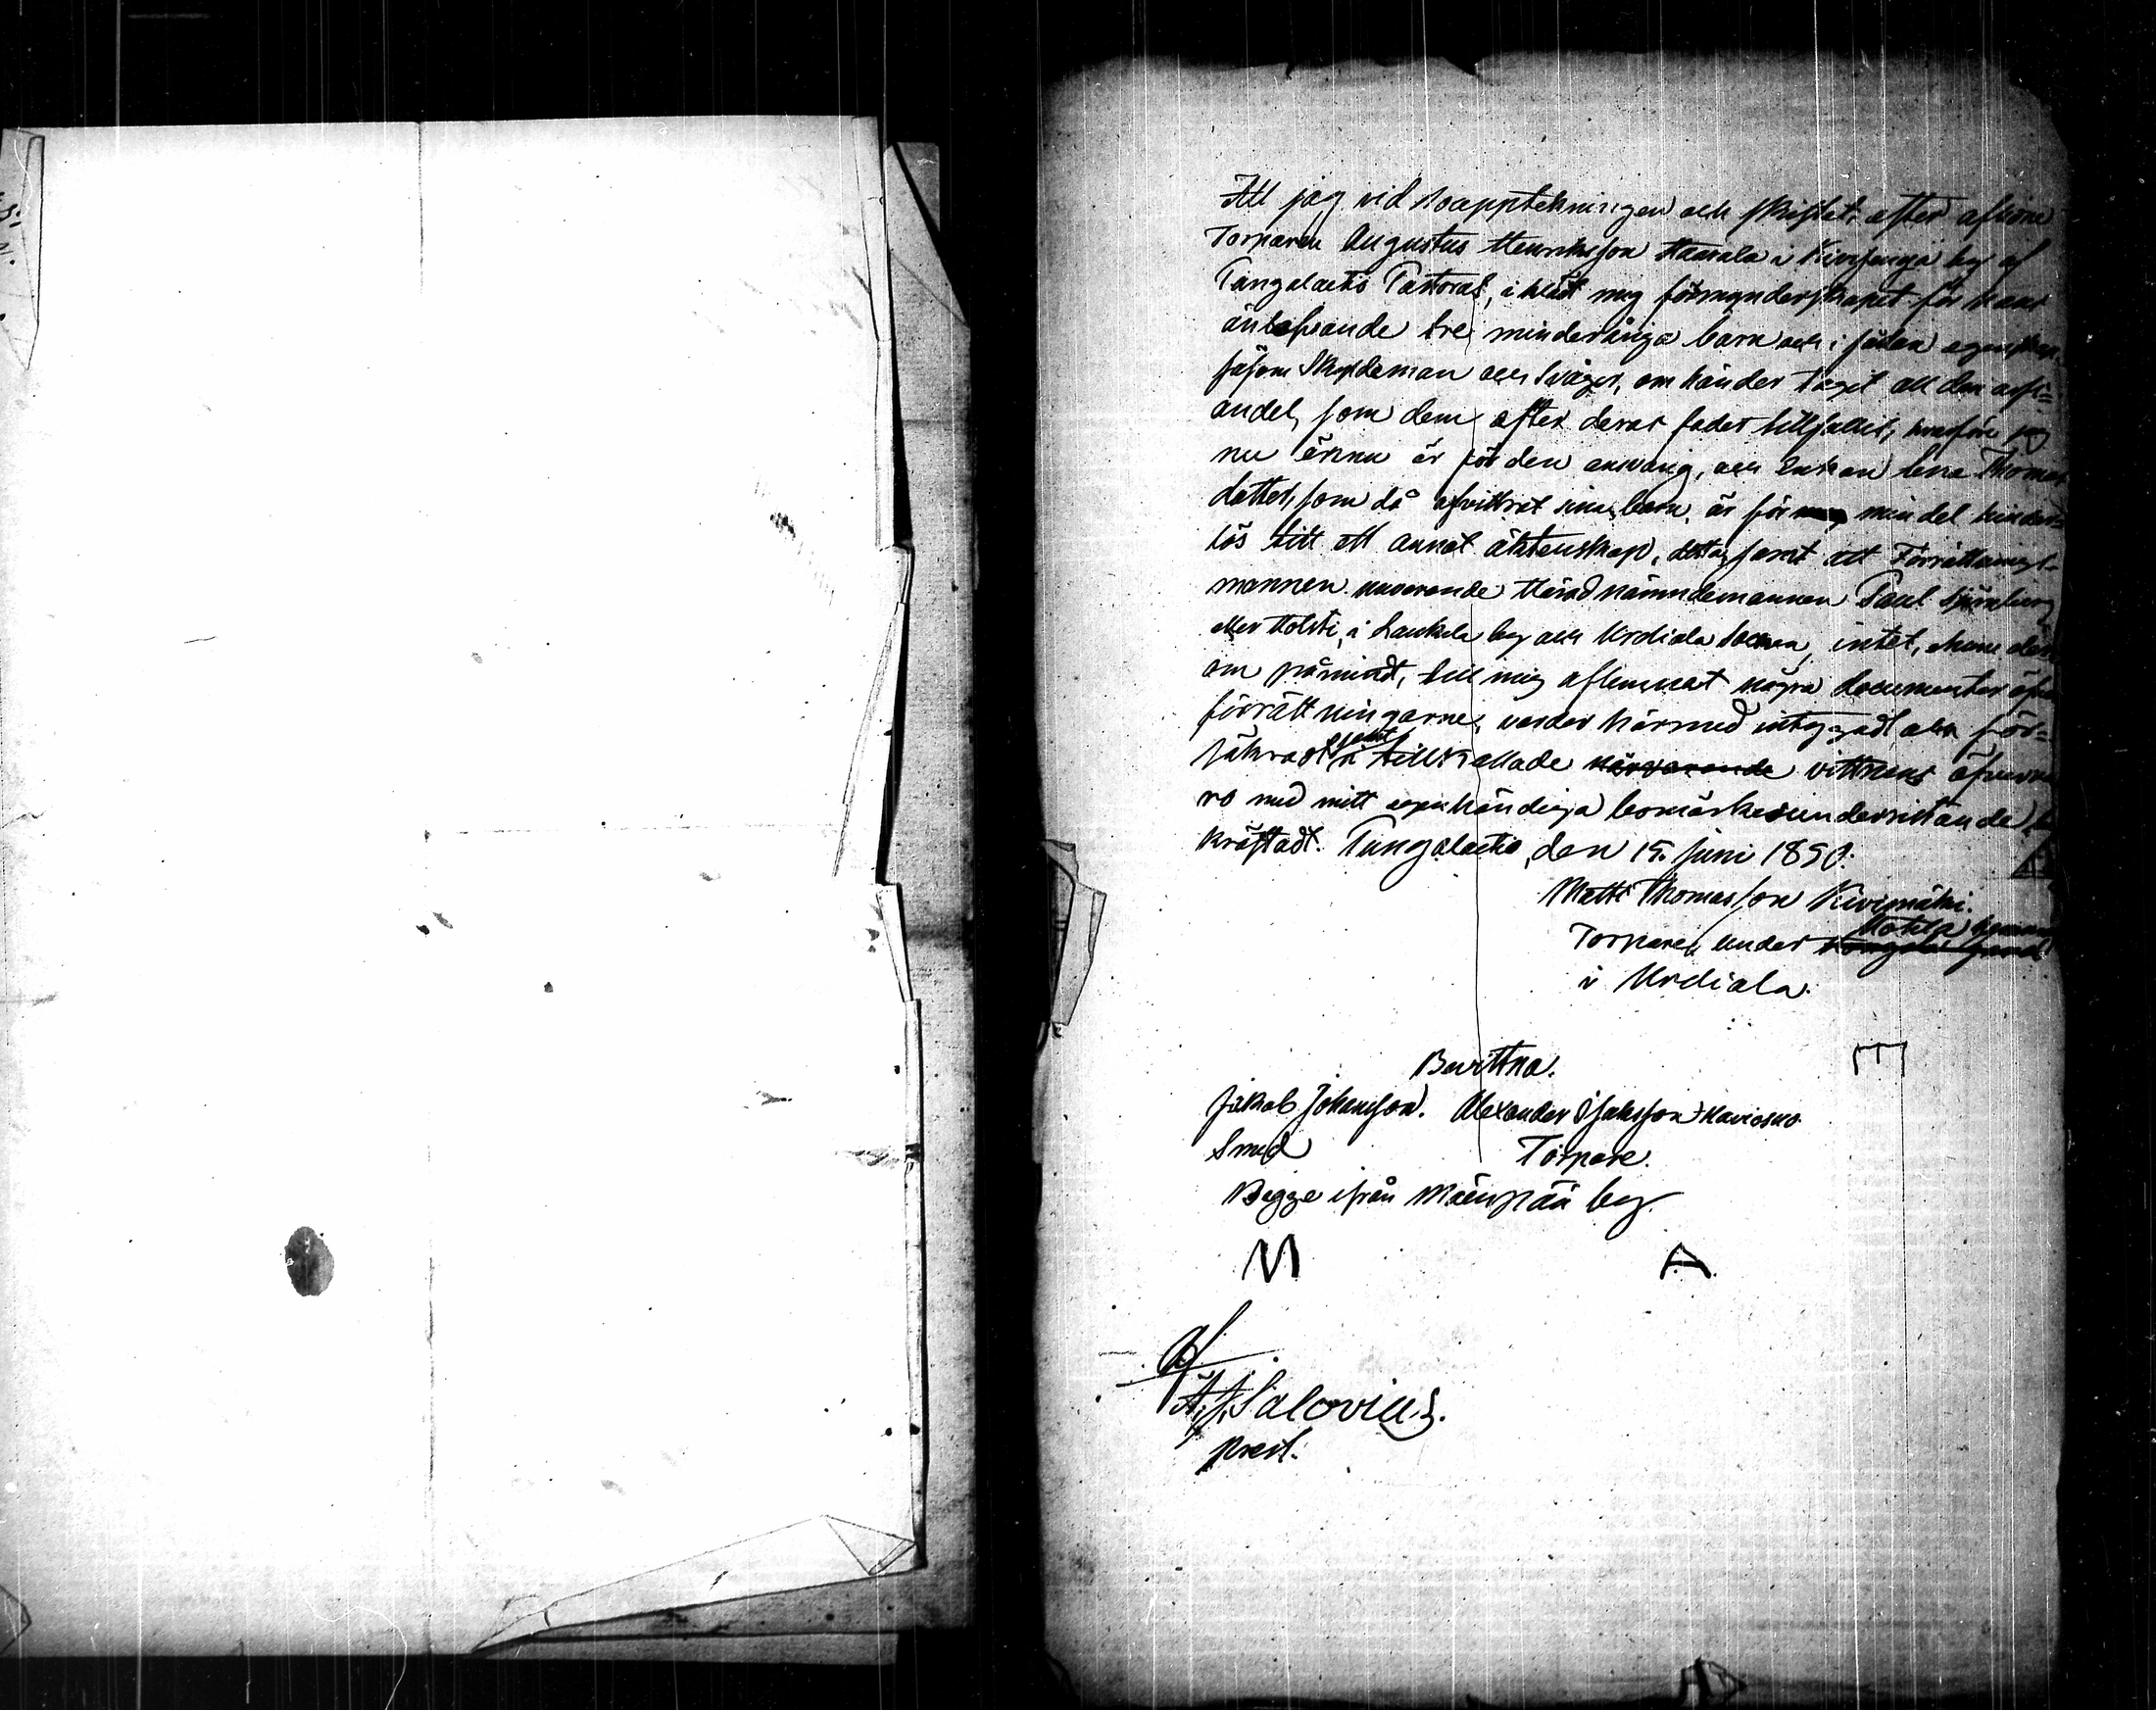 Att jag vid boupptekningen och skiftet efter aflidne
Torparen Augustus Henriksson Haavala i Kivisenoja by af
Tungelaetio Pastorat, iklädt mig förmynderskapet för hans
änlefvande tre minderåriga barn och i sådan egenskap,
såsom Skyldeman och Svåger, om händer tagit all den arfs=
andel, som dem efter deras fader tillfallit, hvarföre jag
nu ännu är för den ansvarig, och Enkan Lena Thomas
dotter, som då afvittrat sina barn, är för min del hinder=
lös till ett annat äktenskap, detta, samt att Förrättnings-
mannen nuvarande Härads nämndemannen Paul Sjöreberg
eller Holsti, i Laukela by och Urdiala Socken, intet, ehuru der
om påmindt, till mig aflemnat några documenter öfver
förrättningarne, varder härmed intygadt och för=
säkradt samt i tillkallade närvarande vittnens öfvervaro
ro med mitt egenhändiga bomärkes undersättande be
kräftadt. Tungelaetio, den 15. Juni 1850.
Matts Thomasson Kivimäki.
Torpare under Hohla hemman
i Urdiala.
Bevittna.
Jakob Johansson. Alexander Isaksson Kaviosuo
Smed Torpare.
Bägge ifrån Mäenpää by.
M A
af
A. J. Salovius.
Prest.